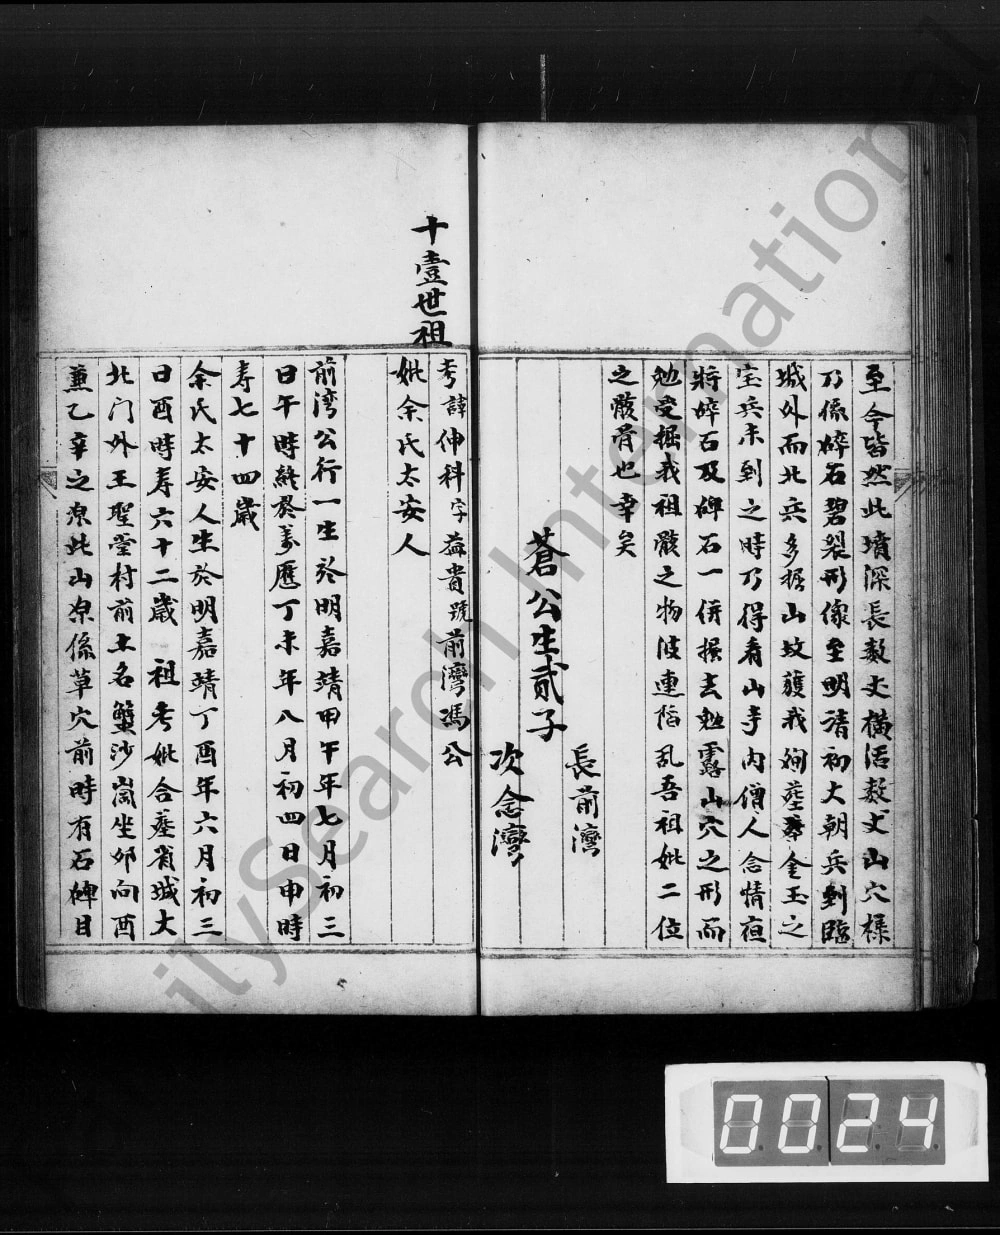 至今皆然此墳深長数丈橫活数丈山穴樣
乃係碎石碧裂形像至明清初大朝兵到臨
城外而北兵多掘山坟護我殉塟金玉之
宝兵未到之時乃得看山寺內僧人念情夜
將碎石及碑石一併損去勉露山穴之形而
勉受掘我祖骸之物波連陷乱吾祖妣二位
之骸骨也幸矣
蒼公生貳子
長前灣
次念灣
十壹世祖
考諱伸科字益貴號前灣馮公
妣余氏太安人
前湾公行一生於明嘉靖甲午年七月初三
日午時終於萬曆丁未年八月初四日申時
寿七十四歲
余氏太安人生於明嘉靖丁酉年六月初三
日酉時寿六十二歲 祖考妣合塟省城大
北门外王聖堂村前土名蟹沙崗坐卯向酉
兼乙辛之原此山原係草穴前時有石碑目
0024
ilySearch International